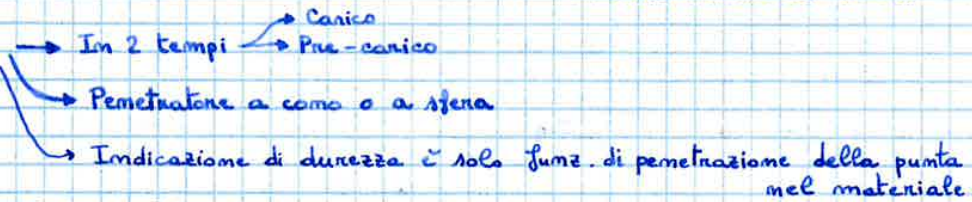 → Carico
→ In 2 tempi → Pre-carico
→ Penetratore a cono o a sfera
→ Indicazione di durezza è solo funz. di penetrazione della punta
nel materiale